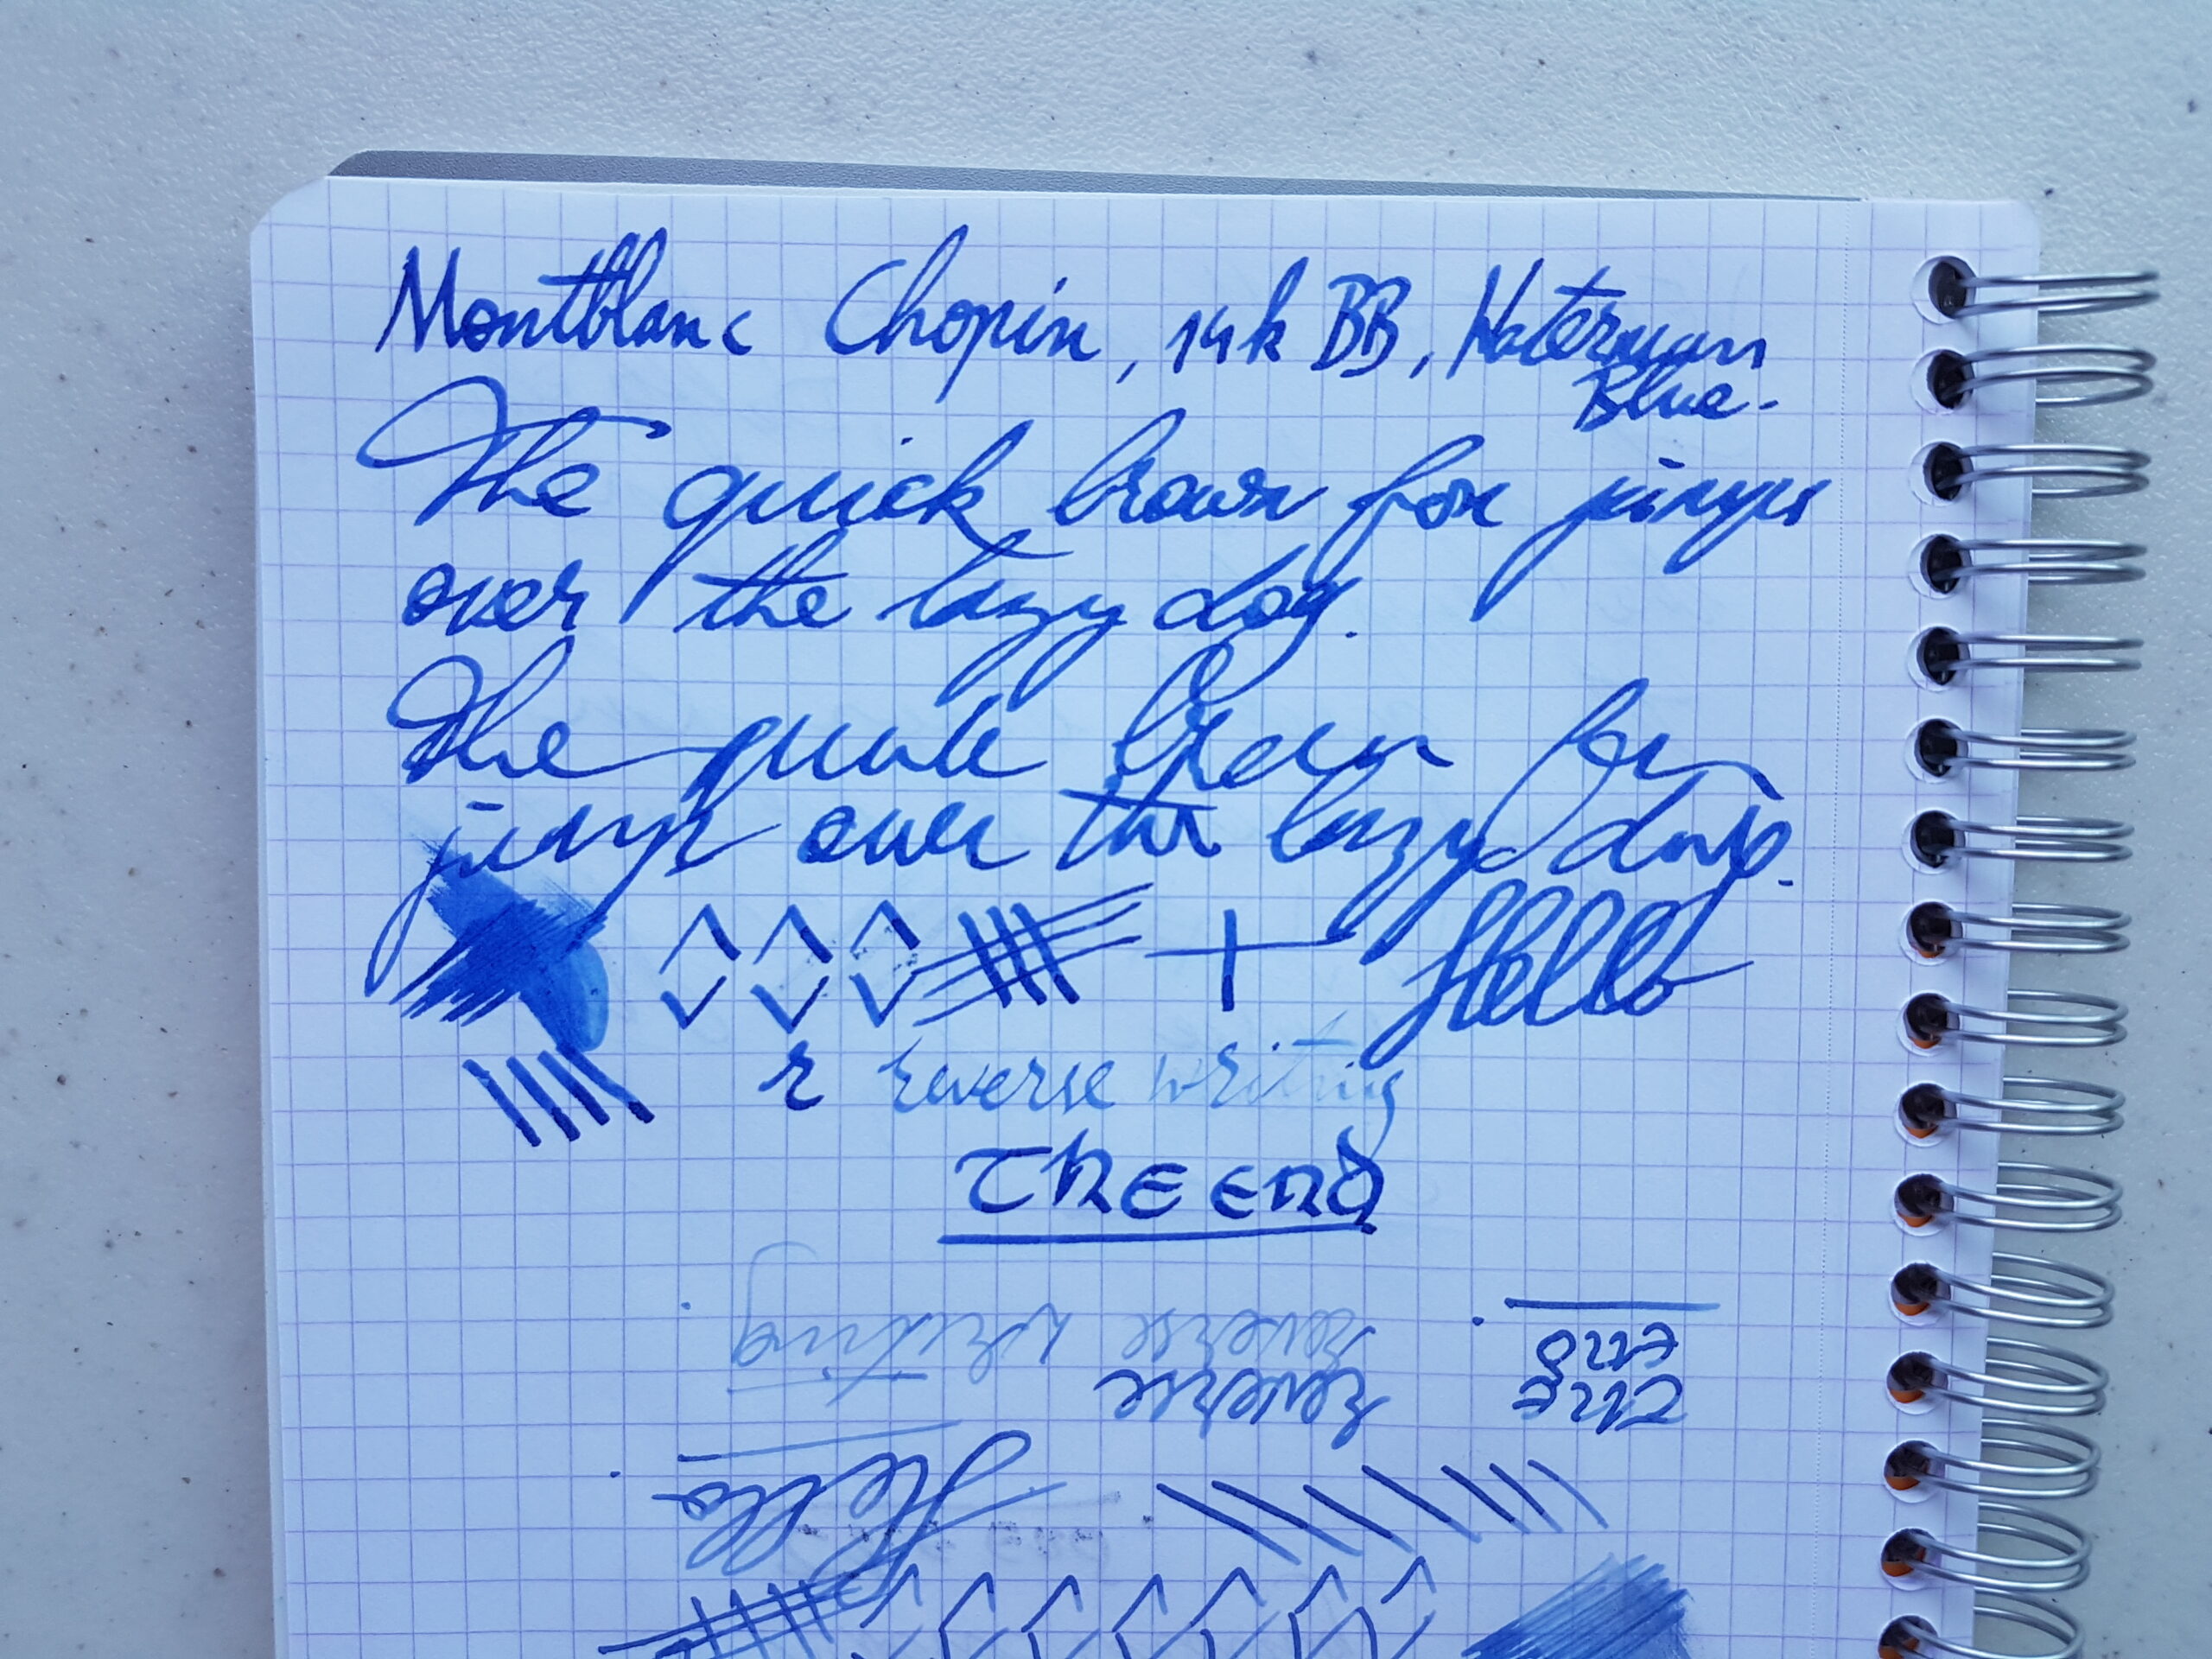 Montblanc Chopin, 14k BB, Waterman
Blue.
The quick brown fox jumps
over the lazy dog.
The quick brown fox
jumps over the lazy dog.
Hello
r reverse writing
THE END
reverse writing
reverse
The
End
Hello